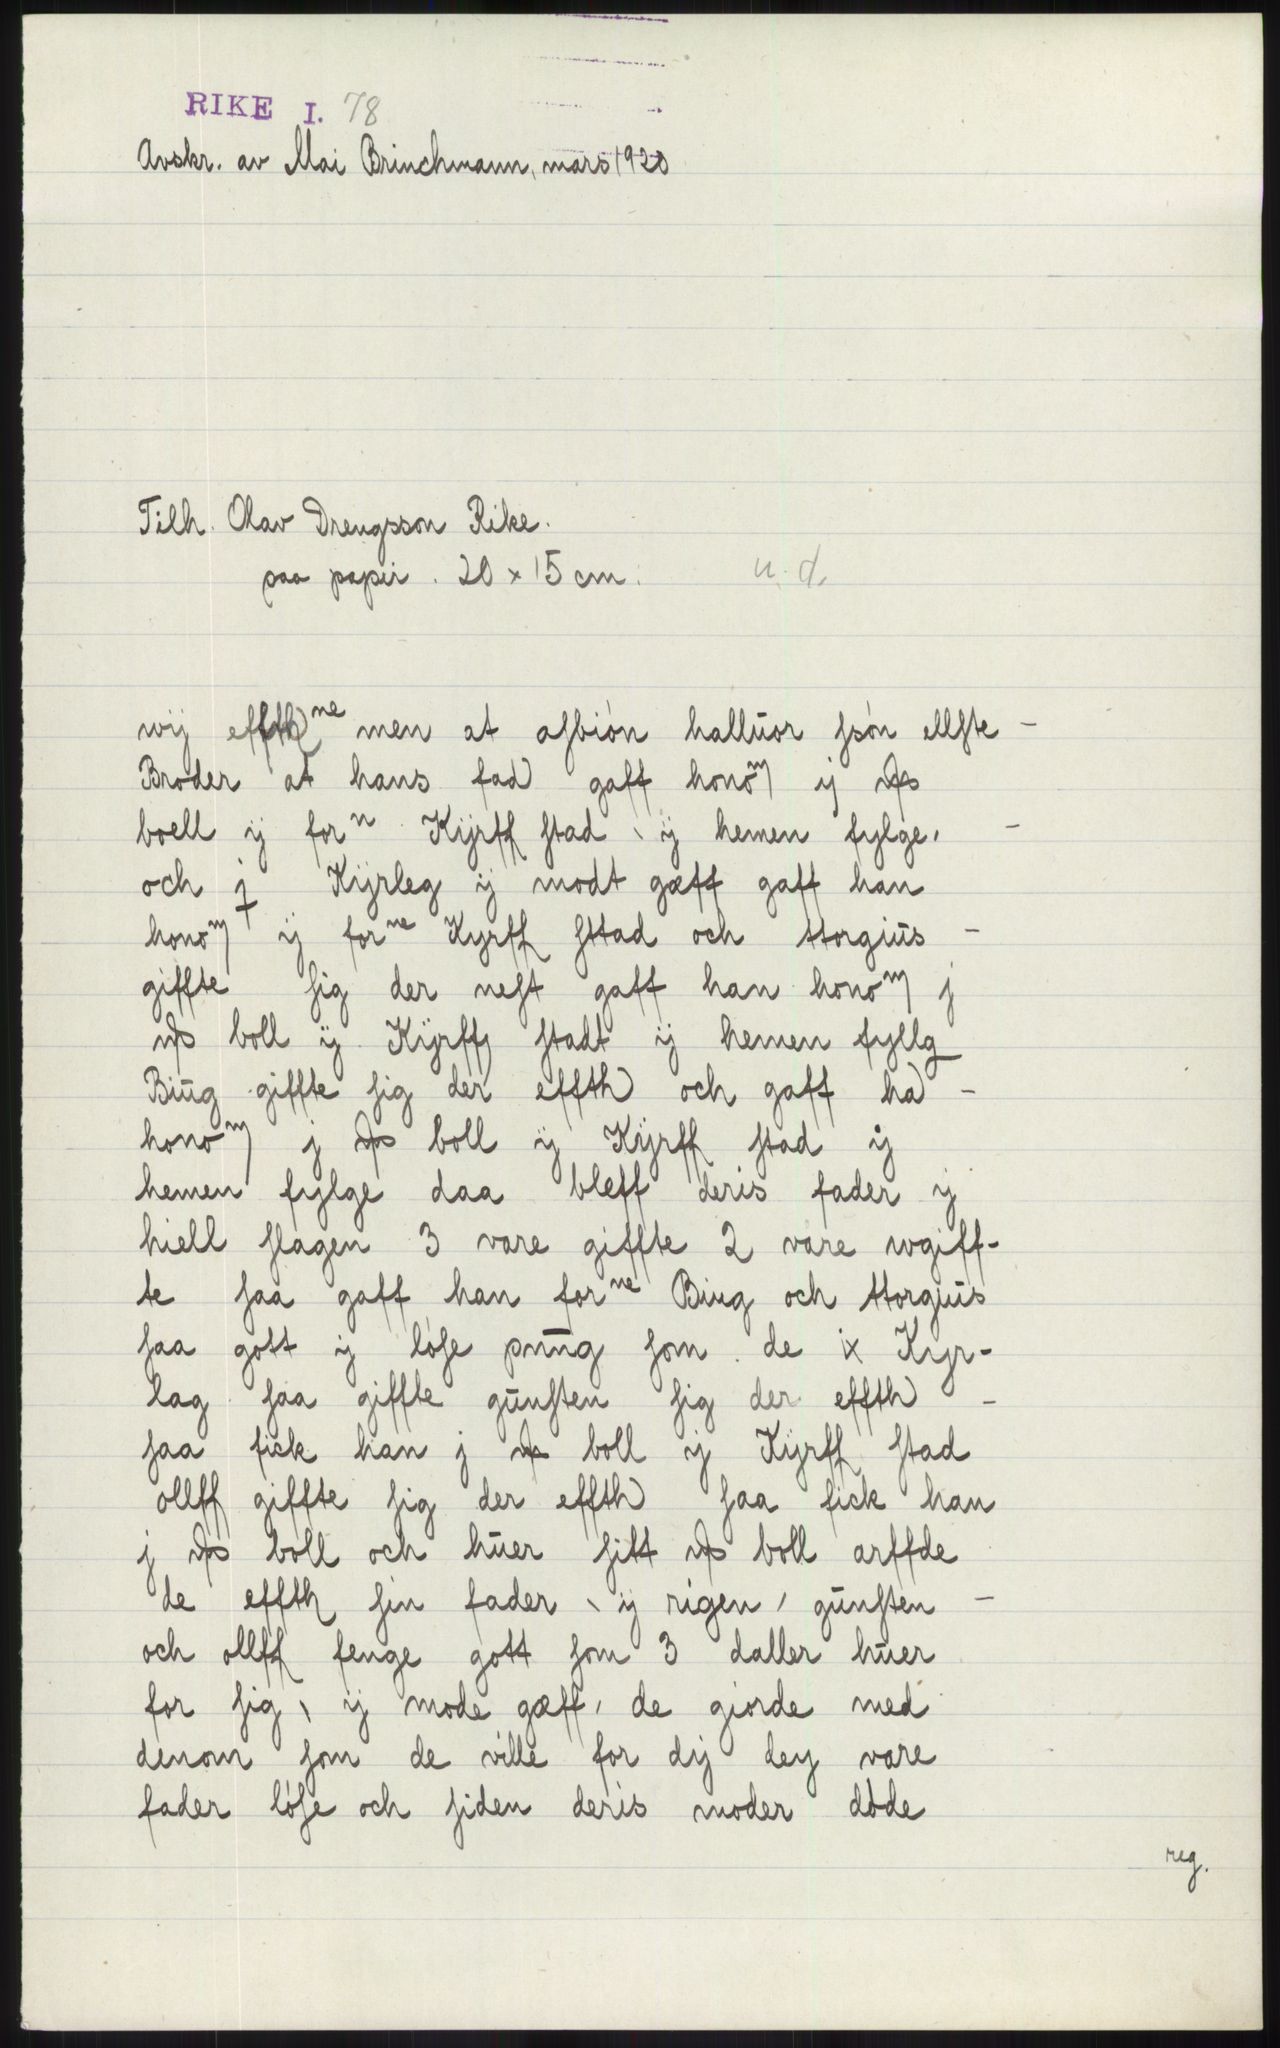 RIKE I. 78
Avskr. av Mai Brinchmann, mars 1920
Tilh. Olav Drengsson Rike.
paa papir. 20 x 15 cm. u. d.
wij effth ne men at asbión hallūor ssón ellste –
Broder at hans fad gaff honōm ij
boell ij forn Kÿrff stad \ ij hemen fylge, –
och j Kÿrleg ij modt gæff gaff han
honom ij forne Kyrff sttad och ttorgiūs –
giffte sig der nest gaff han honom j
boll ij Kÿrff stadt ij hemen fyllg
Biūg giffte sig der effth och gaff ha –
honom j boll ij Kÿrff stad ij
hemen fylge daa bleff deris fader ij
hiell slagen 3 vare giffte 2 vare wgiff-
te saa gaff han forne Biug och ttorgius
saa gott ij lóse pnūg som de ix Kyr-
lag saa giffte gūnsten sig der effth –
saa fick han j boll ij Kÿrff stad
ollff giffte sig der effth saa fick han
j boll och hūer sitt boll arffde
de effth sin fader \ ij rigen / gūnsten –
och ollff fenge gott som 3 daller hūer
for sig \ ij mode gæff / de giorde med
denom som de ville for dij dey vare
fader lóse och siden deris moder dóde
reg.